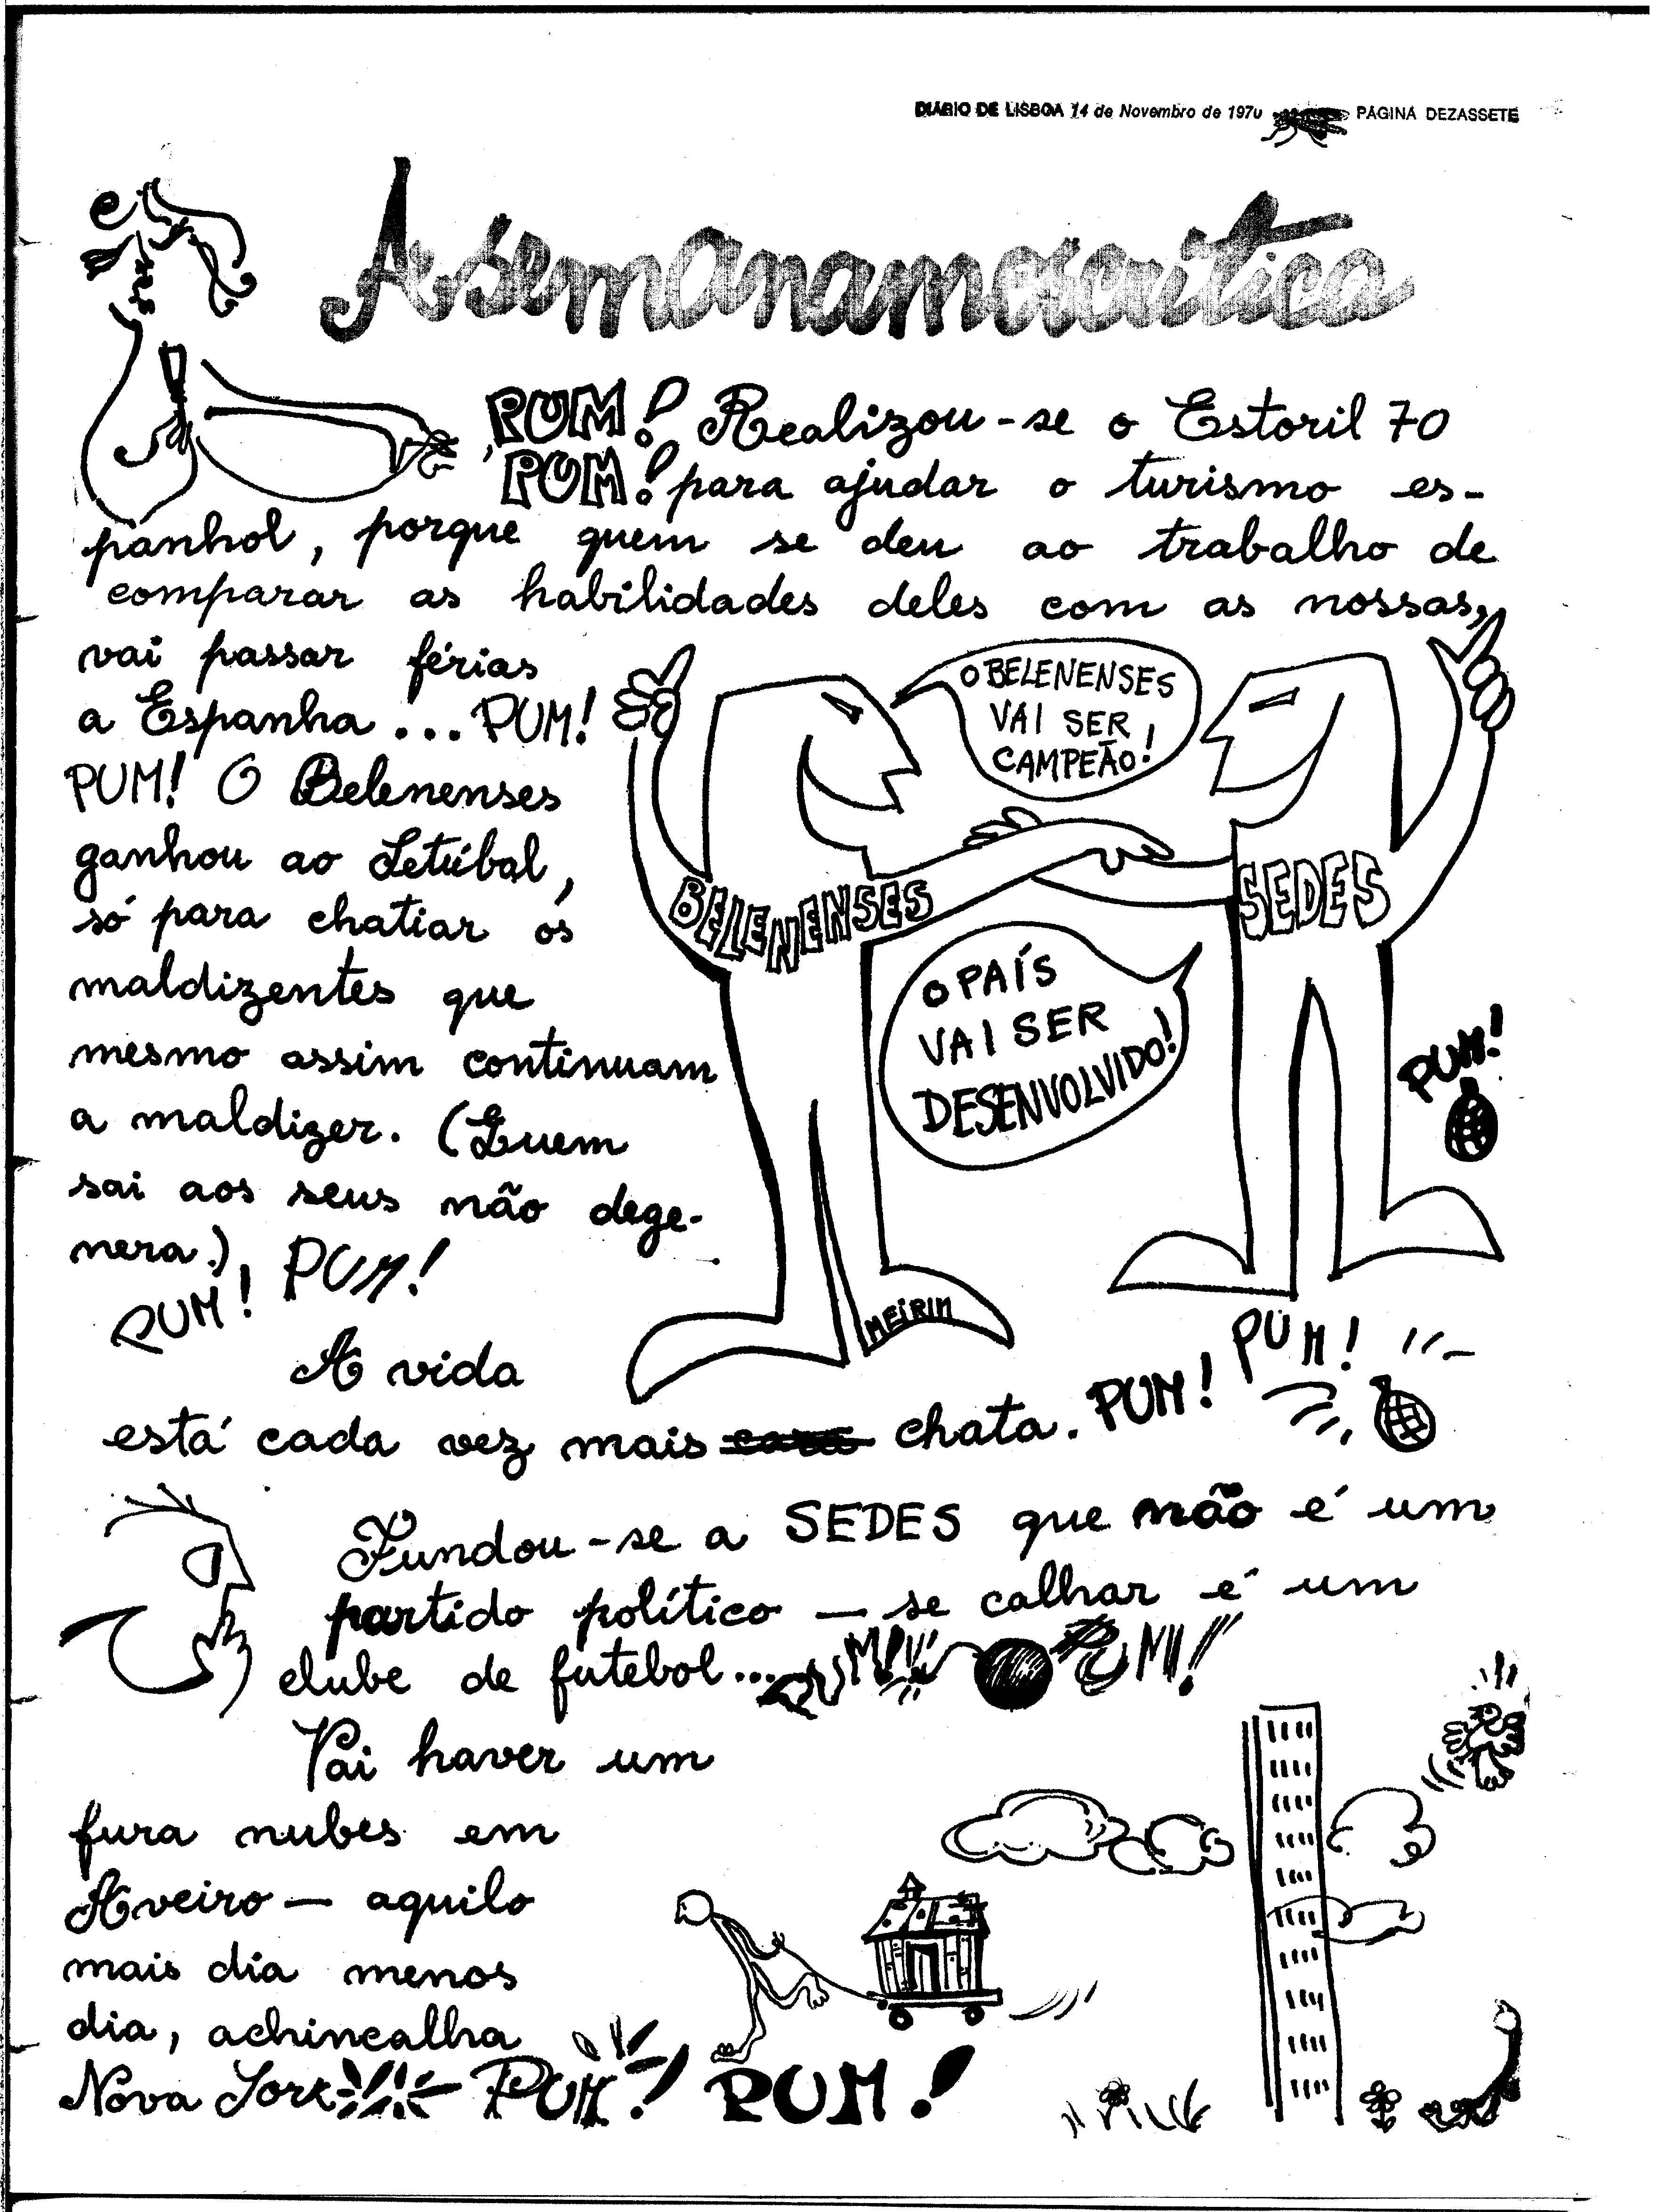 DIÁRIO DE LISBOA 14 de Novembro de 1970 PÁGINA DEZASSETE
A semanamoscrítica
PUM! Realizou-se o Estoril 70
PUM! para ajudar o turismo es-
panhol, porque quem se deu ao trabalho de
comparar as habilidades deles com as nossas,
vai passar férias
a Espanha... PUM!
PUM! O Belenenses
ganhou ao Setúbal,
só para chatiar os
maldizentes que
mesmo assim continuam
a maldizer. (Quem
sai aos seus não dege-
nera.)
PUM! PUM!
O BELENENSES
VAI SER
CAMPEÃO!
BELENENSES
SEDES
O PAÍS
VAI SER
DESENVOLVIDO!
PUM!
MEIRIM
A vida
está cada vez mais cara chata. PUM! PUM!
Fundou-se a SEDES que não é um
partido político — se calhar é um
clube de futebol... PUM! PUM!
Vai haver um
fura nubes em
Aveiro — aquilo
mais dia menos
dia, achincalha
Nova Iork PUM! PUM!